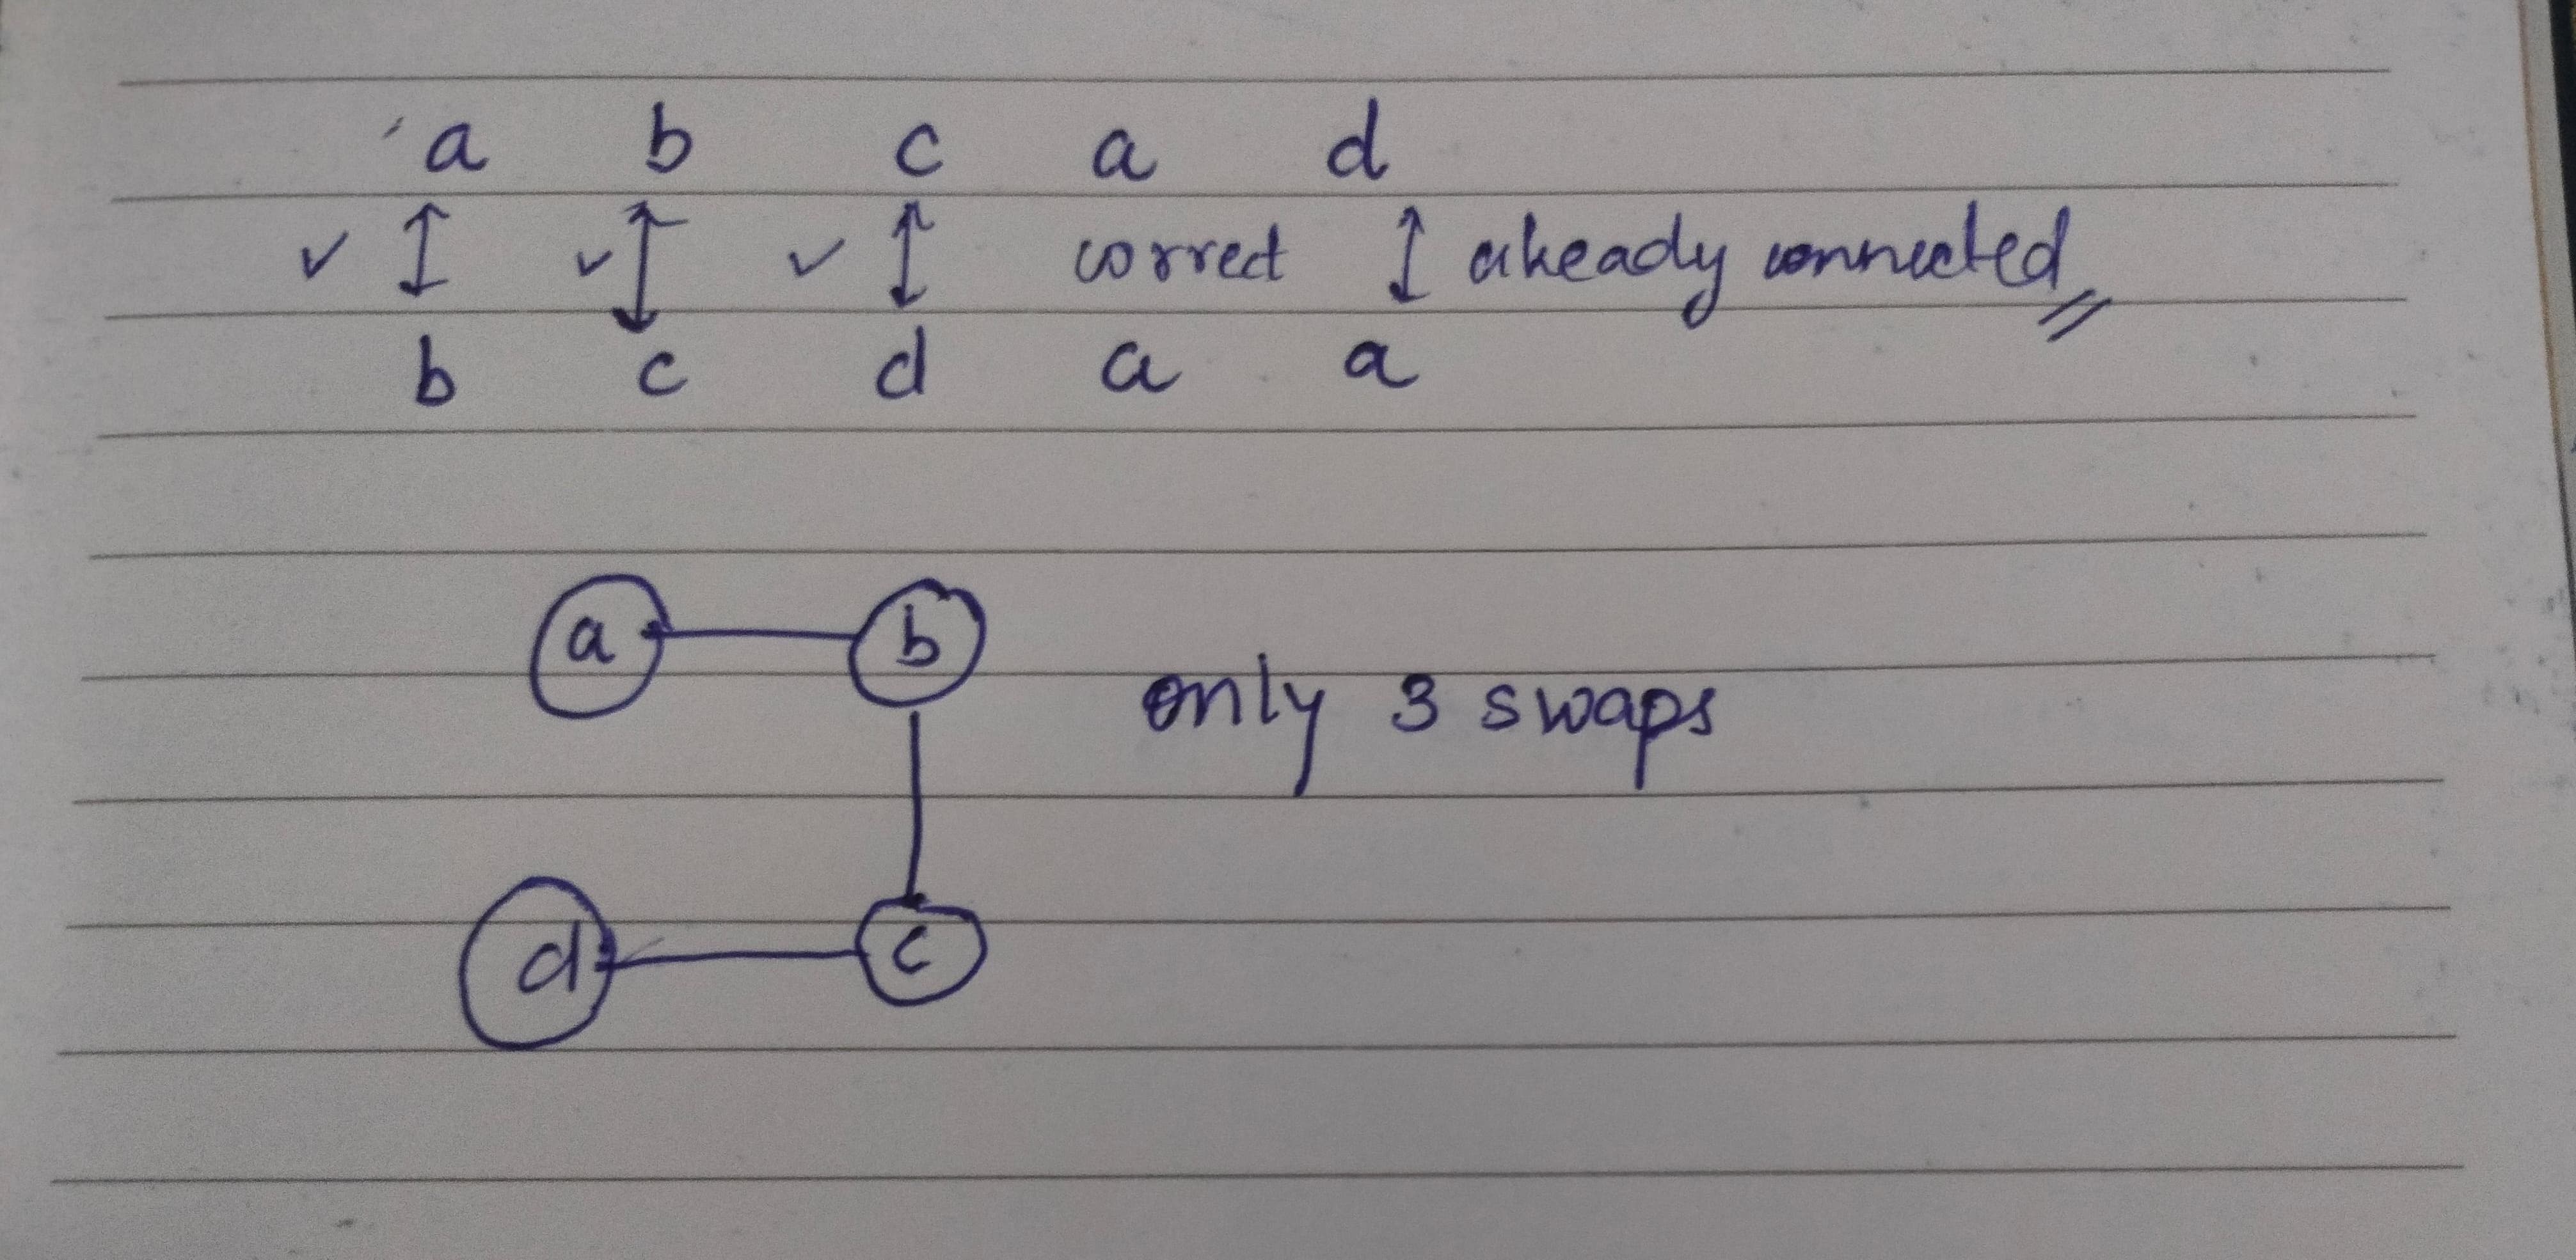 a b c a d
✓ ↕ ✓ ↕ ✓ ↕ correct ↕ already connected
b c d a a
a b
only 3 swaps
d c